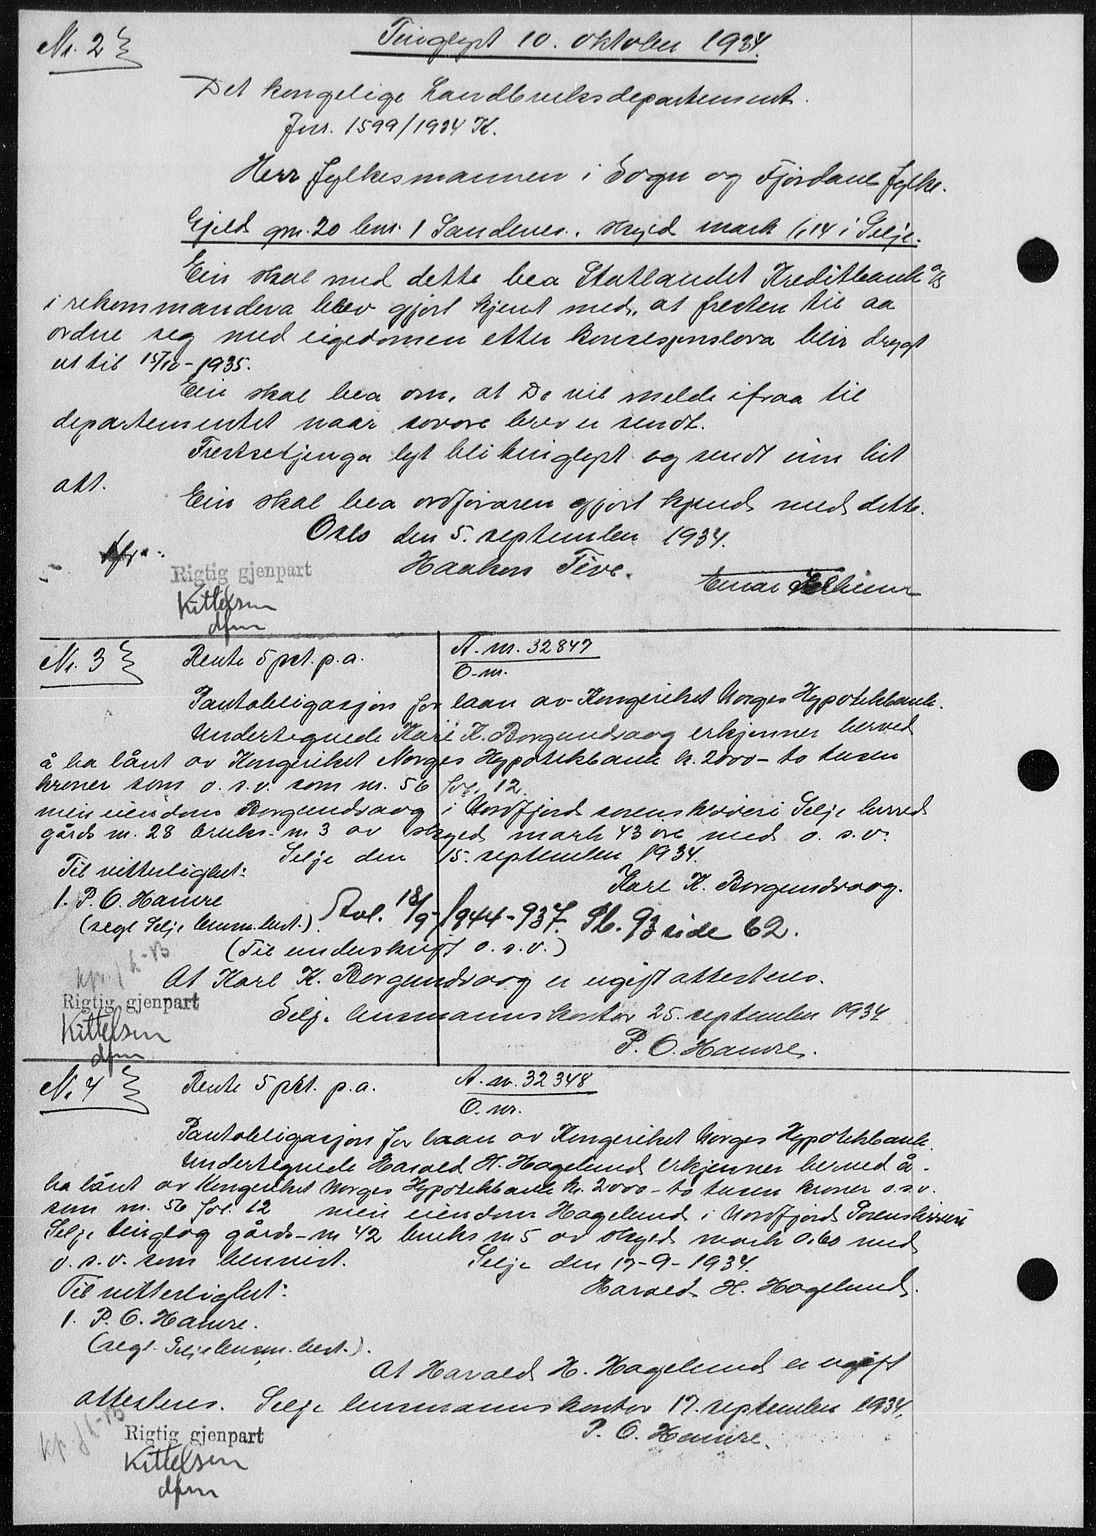 Nr. 2
Tinglyst 10. oktober 1934.
Det kongelige Landbruksdepartement.
Jnr. 1599/1934 K.
Herr fylkesmannen i Sogn og Fjordane fylke.
Gjeld gnr. 20 bnr. 1 Sandenes. skyld mark 1,14 i Selje.
Ein skal med dette bea Statlandet Kreditbank A/S
i rekommandera brev gjort kjent med, at fresten til aa
ordne seg med eigedomen etter konsesjonslova blir drygt
ut til 15/10-1935.
Ein skal bea om, at De vil melde ifraa til
departementet naar sovore brev er sendt.
Frestsetjinga lyt bli tinglyst og sendt inn hit
att.
Ein skal bea ordføraren gjort kjend med dette.
Oslo den 5. september 1934.
Haakon Five.
Einar
Rigtig gjenpart
Kittelsen
dfm
Nr. 3
Rente 5 pct. p.a.
A. nr. 32847
O. nr.
Pantobligasjon for laan av Kongeriket Norges Hypotekbank.
Undertegnede Karl K. Borgundvaag erkjenner herved
å ha lånt av Kongeriket Norges Hypotekbank kr. 2000 - to tusen
kroner som o.s.v. som nr. 56 fol. 12.
min eiendom Borgundvaag i Nordfjord sorenskriveri Selje herred
gårds nr. 28 bruks. nr 3 av skyld mark 43 øre med o.s.v.
Selje den 15. september 1934.
Til vitterlighet:
Karl K. Borgundvaag.
1. P. O. Hamre
(segl Selje lensm. best.).
Avl. 18/9-1944-937. Pb. 93 side 62.
(Til underskrift o.s.v.)
At Karl K. Borgundvaag er ugift attesteres.
Rigtig gjenpart
Selje lensmannskontor 25. september 1934
Kittelsen
P. O. Hamre.
dfm
Nr. 4
Rente 5 pkt. p.a.
A. nr. 32348
O. nr.
Pantobligasjon for laan av Kongeriket Norges Hypotekbank.
Undertegnede Harald H. Hagelund erkjenner herved å
ha lånt av Kongeriket Norges Hypotekbank kr. 2000 - to tusen kroner o.s.v.
som nr. 56 fol. 12 min eiendom Hagelund i Nordfjord Sorenskriveri
Selje tinglag gårds-nr 42 bruks nr 5 av skyld mark 0.60 med
o.s.v. som bemeldt.
Selje den 17-9-1934.
Til vitterlighet:
Harald H. Hagelund.
1. P. O. Hamre.
(segl. Selje lensm. best.).
At Harald H. Hagelund er ugift
attesteres. Selje lensmannskontor 17. september 1934,
P. O. Hamre.
Rigtig gjenpart
Kittelsen
dfm